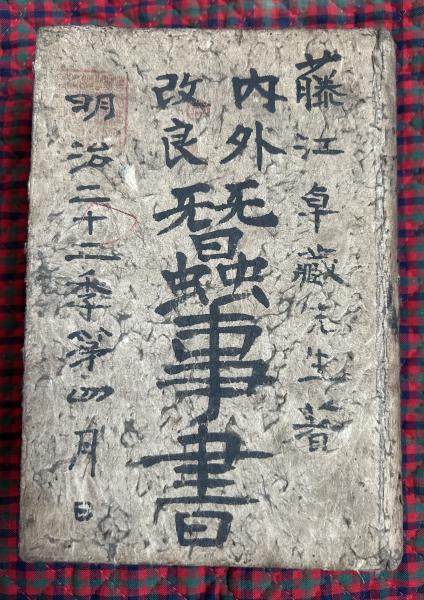 藤江卓蔵先生著
内外
改良
蠶事書
明治二十二季第四月日